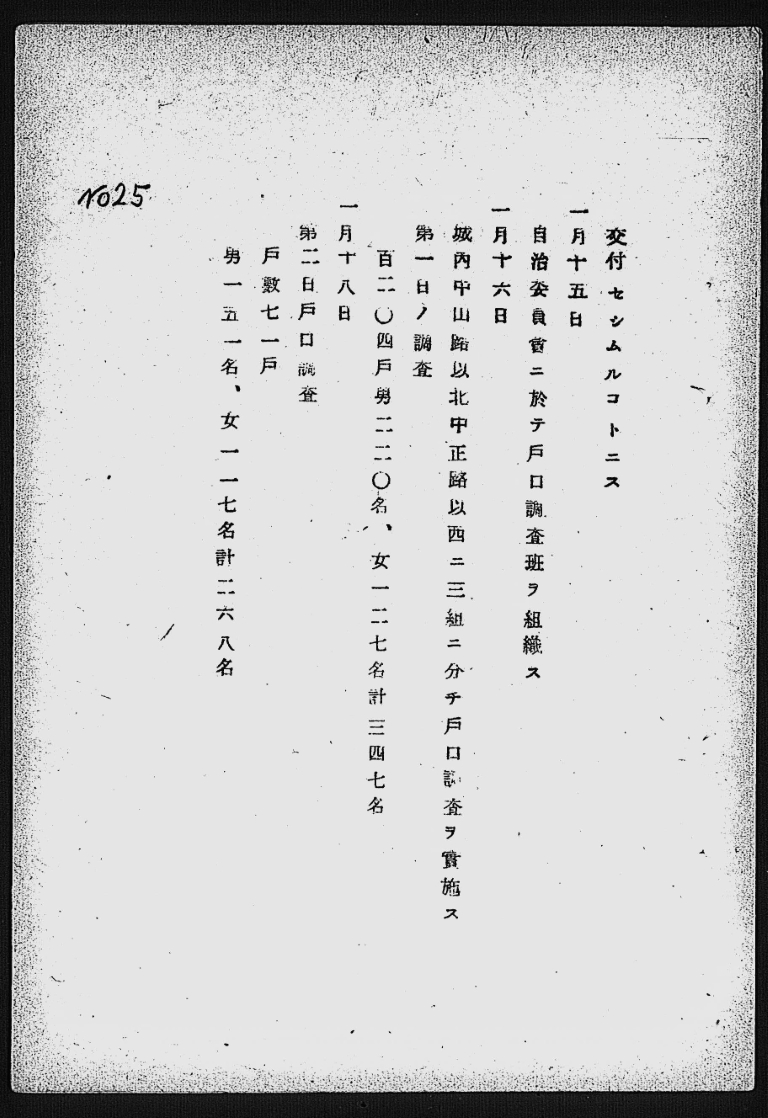 交付セシムルコトニス
一月十五日
自治委員會ニ於テ戶口調査班ヲ組織ス
一月十六日
城內中山路以北中正路以西ニ三組ニ分チ戶口調査ヲ實施ス
第一日ノ調査
百二〇四戶男二二〇名、女一二七名計三四七名
一月十八日
第二日戶口調査
戶數七一戶
男一五一名、女一一七名計二六八名
No25